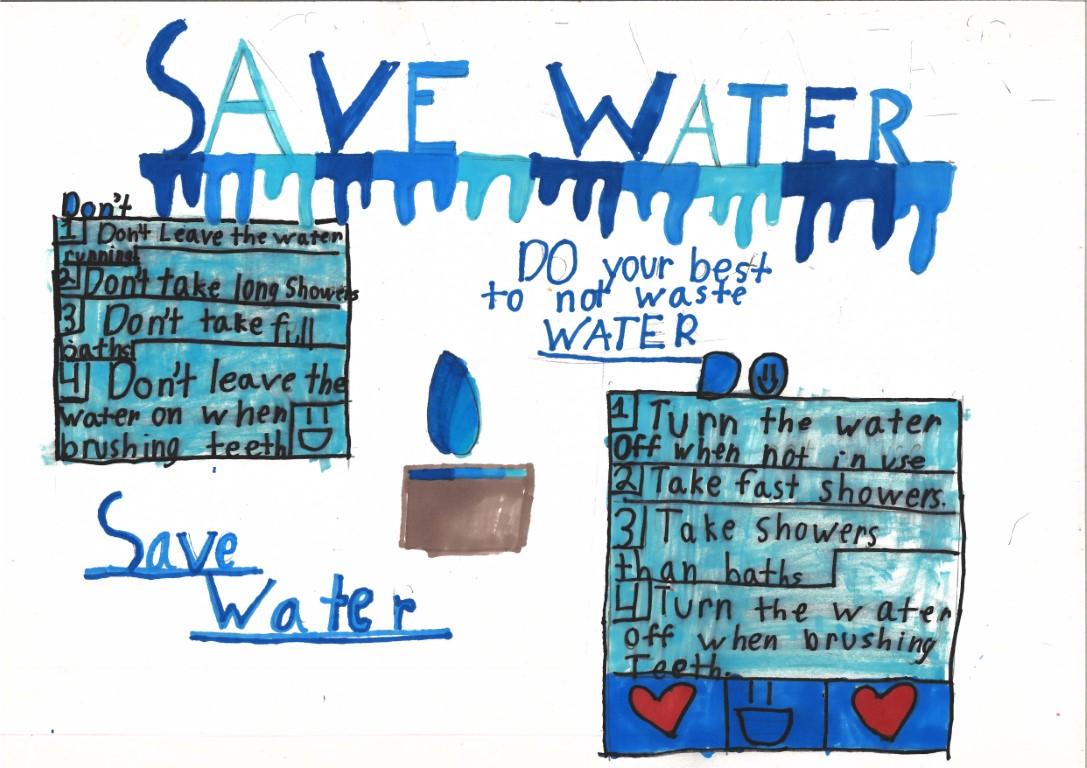 SAVE WATER
Don't
1 Don't Leave the water
running!
2 Don't take long showers
3 Don't take full
baths!
4 Don't leave the
water on when
brushing teeth
DO your best
to not waste
WATER
Save
Water
DO
1 Turn the water
Off when not in use
2 Take fast showers.
3 Take showers
than baths
4 Turn the water
off when brushing
Teeth.